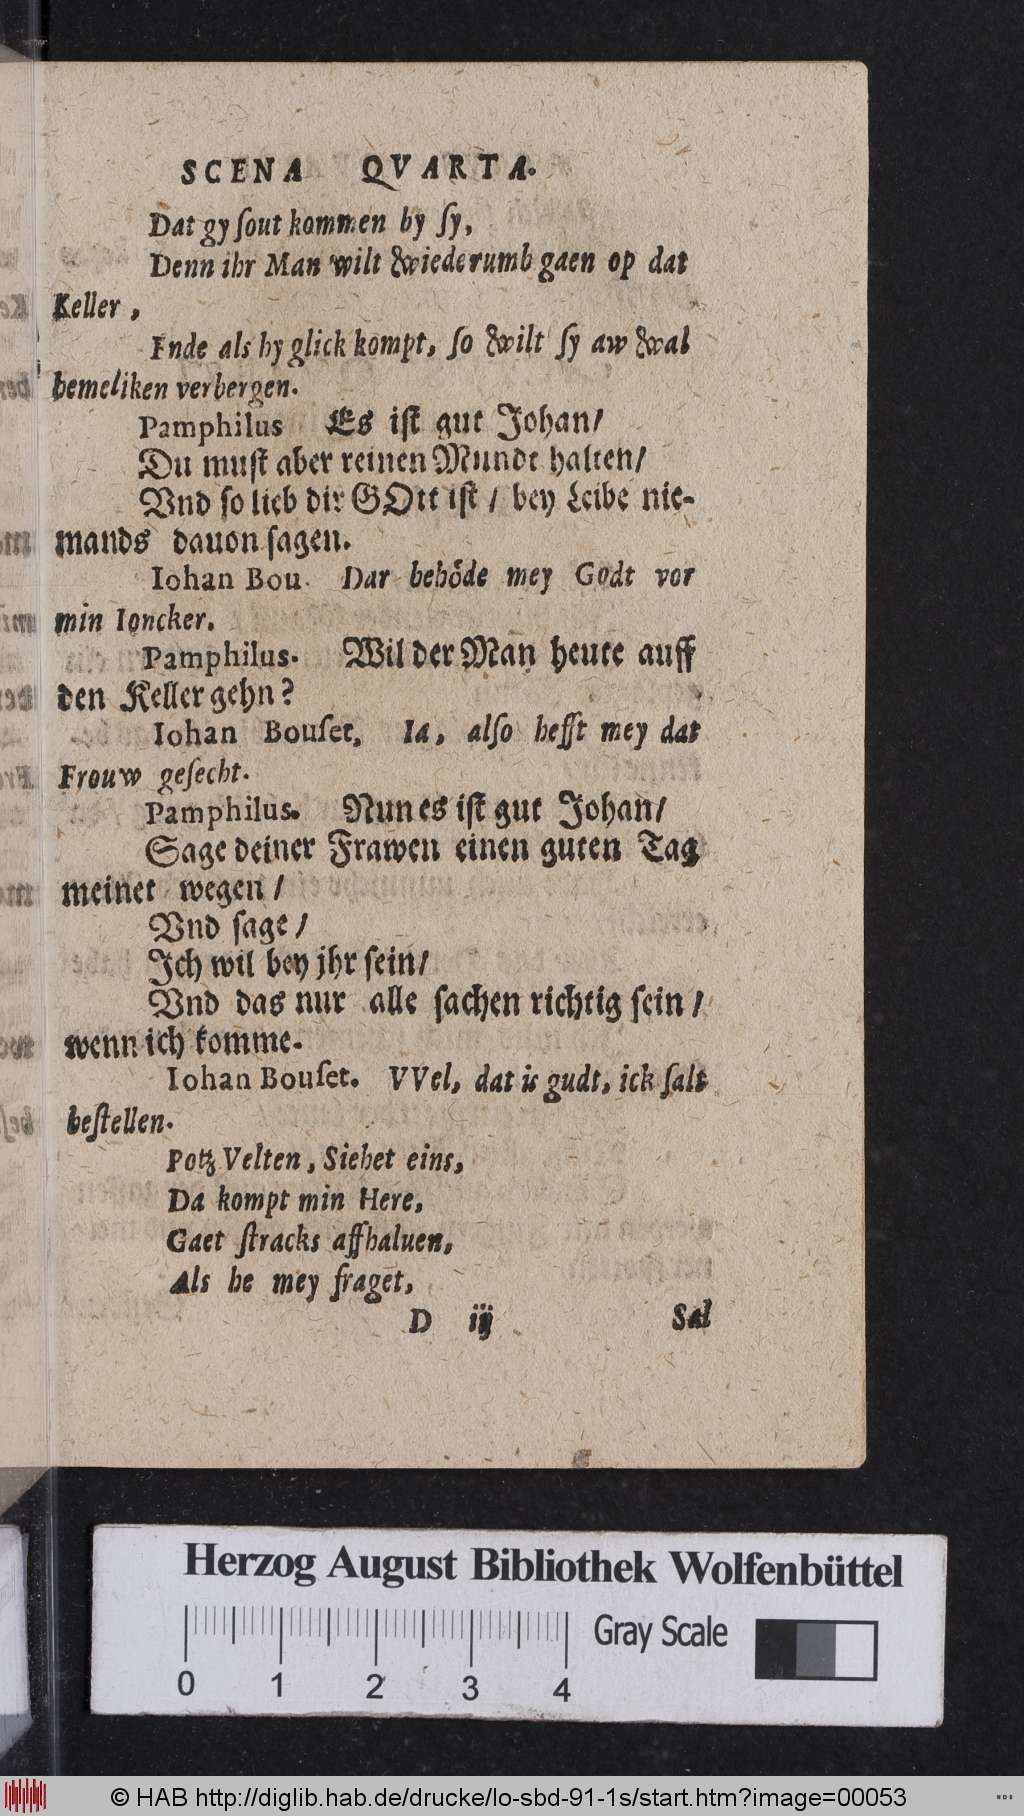 SCENA QVARTA.
Dat gy ſout kommen by ſy,
Denn ihr Man wilt wiederumb gaen op dat
Keller,
Ende als hy glick kompt, ſo wilt ſy aw wal
hemeliken verbergen.
Pamphilus Es iſt gut Johan/
Du muſt aber reinen Mundt halten/
Vnd ſo lieb dir GOtt iſt / bey Leibe nie-
mands dauon ſagen.
Iohan Bou. Dar behöde mey Godt vor
min Ioncker.
Pamphilus. Wil der Man heute auff
den Keller gehn?
Iohan Bouſet, Ia, alſo hefft mey dat
Frouw geſecht.
Pamphilus. Nun es iſt gut Johan/
Sage deiner Frawen einen guten Tag
meinet wegen /
Vnd ſage /
Ich wil bey jhr ſein/
Vnd das nur alle ſachen richtig ſein /
wenn ich komme.
Iohan Bouſet. VVel, dat is gudt, ick ſalt
beſtellen.
Potz Velten, Siehet eins,
Da kompt min Here,
Gaet ſtracks affhaluen,
Als he mey fraget,
D iij Sal
Herzog August Bibliothek Wolfenbüttel
0 1 2 3 4 Gray Scale
© HAB http://diglib.hab.de/drucke/lo-sbd-91-1s/start.htm?image=00053